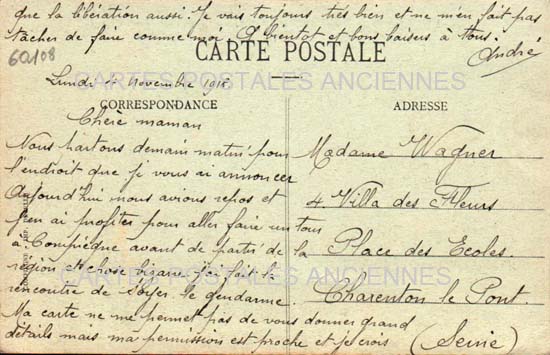 que la libération aussi. Je vais toujours très bien et ne m'en fait pas
tacher de faire comme moi. A bientot et bons baisers à tous.
André
CARTE POSTALE
60108
Lundi 4 novembre 1918
CARTES POSTALES ANCIENNES
CORRESPONDANCE
ADRESSE
Chère maman
Nous partons demain matin pour
l'endroit que je vous ai annoncer
Aujourd'hui nous avions repos et
j'en ai profiter pour aller faire un tour
à Compiègne avant de partir de la
région et chose bizarre j'ai fait la
rencontre de le gendarme.
Ma carte ne me permet pas de vous donner grand
détails mais ma permission est proche et je crois
Madame Wagner
4 Villa des Fleurs
Place des Ecoles.
CARTES POSTALES ANCIENNES
Charenton le Pont.
(Seine)